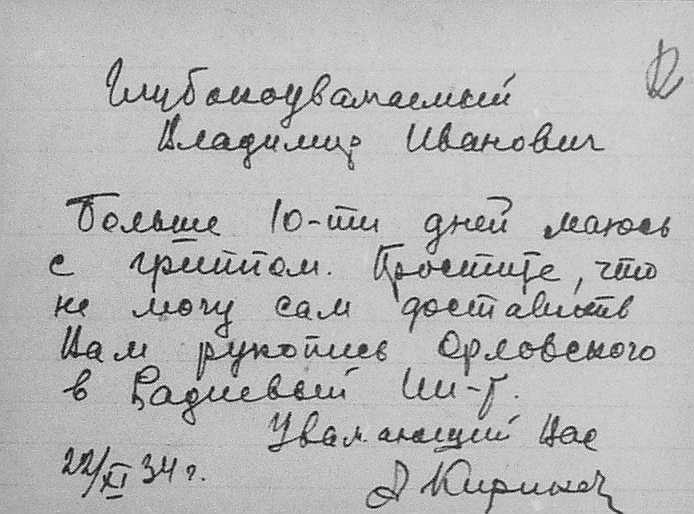 Глубокоуважаемый
Владимир Иванович
Больше 10-ти дней маюсь
с гриппом. Простите, что
не могу сам доставить
Вам рукопись Орловского
в Радиевый Ин-т.
Уважающий Вас
22/XI 34 г.